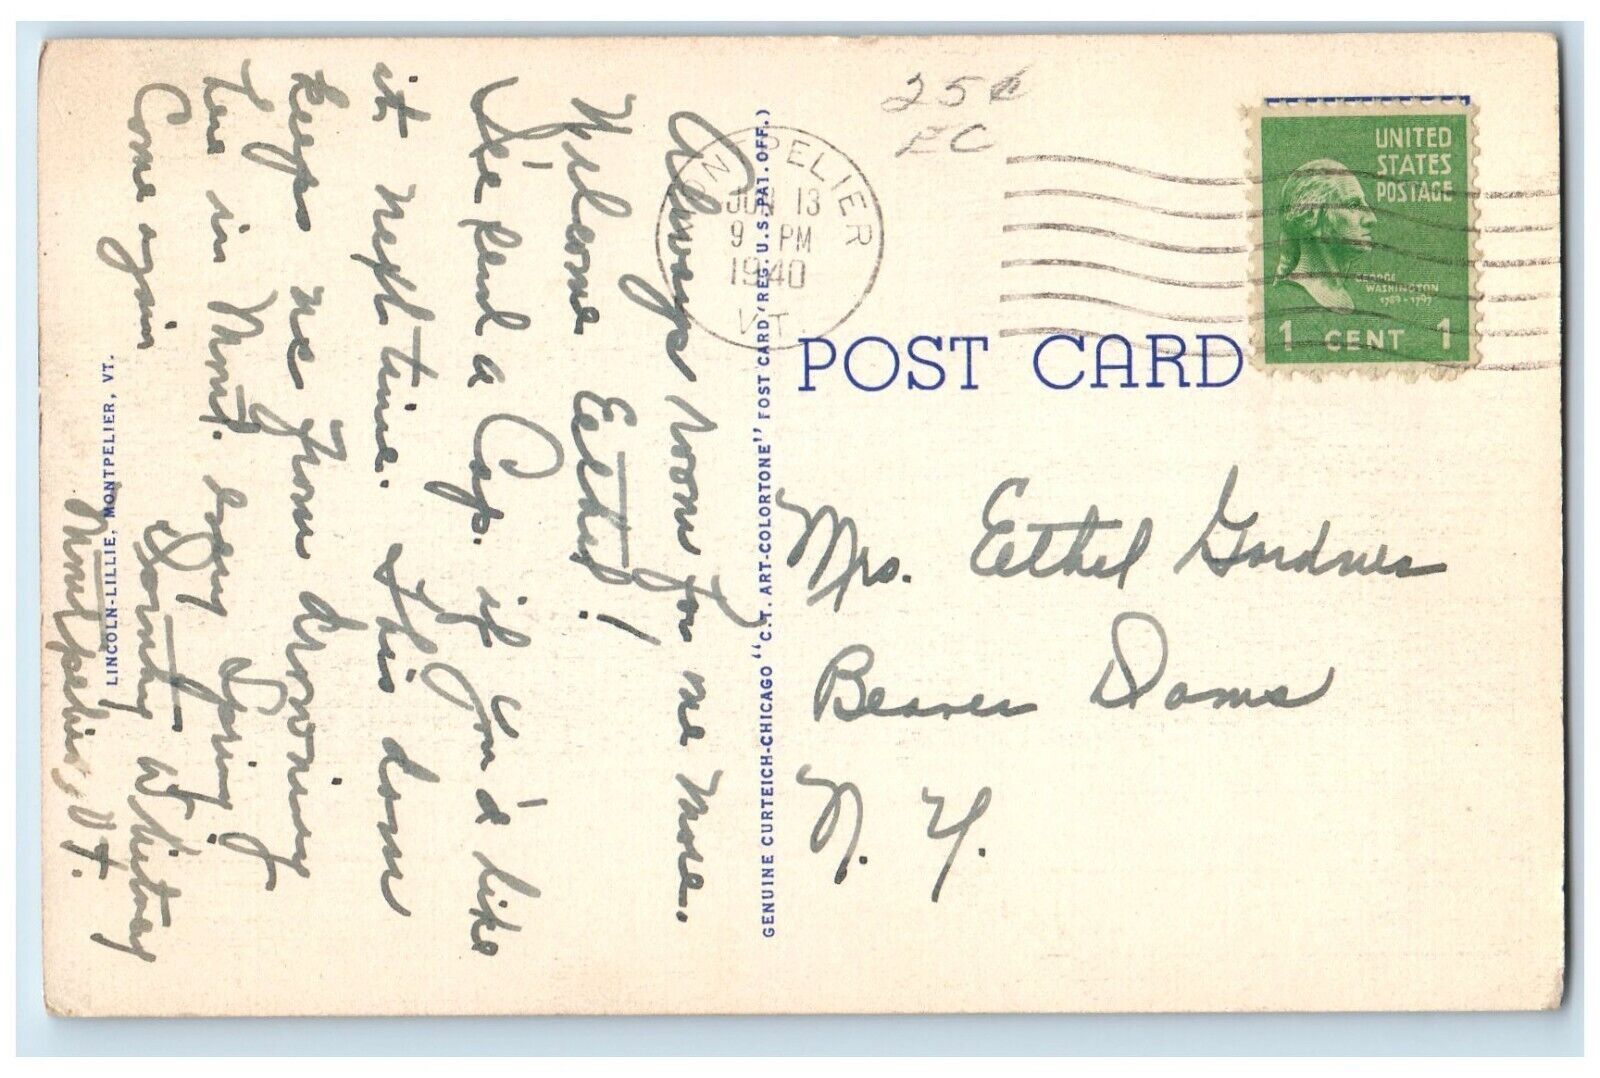 Always room for one more.
Welcome Eethel!
I'se send a Cap. if you'd like
it next time. This dom
keeps me from drowning
here in Mont. every Spring!
Come again
Dorothy Whitney
Montpelier, Vt.
LINCOLN-LILLIE, MONTPELIER, VT.
GENUINE CURTEICH-CHICAGO "C.T. ART-COLORTONE" POST CARD (REG. U.S. PAT. OFF.)
25¢
EC
MONTPELIER
JUN 13
9 PM
1940
VT.
UNITED
STATES
POSTAGE
GEORGE
WASHINGTON
1789-1797
1 CENT 1
POST CARD
Mrs. Eethel Gardner
Beaver Dams
N. Y.